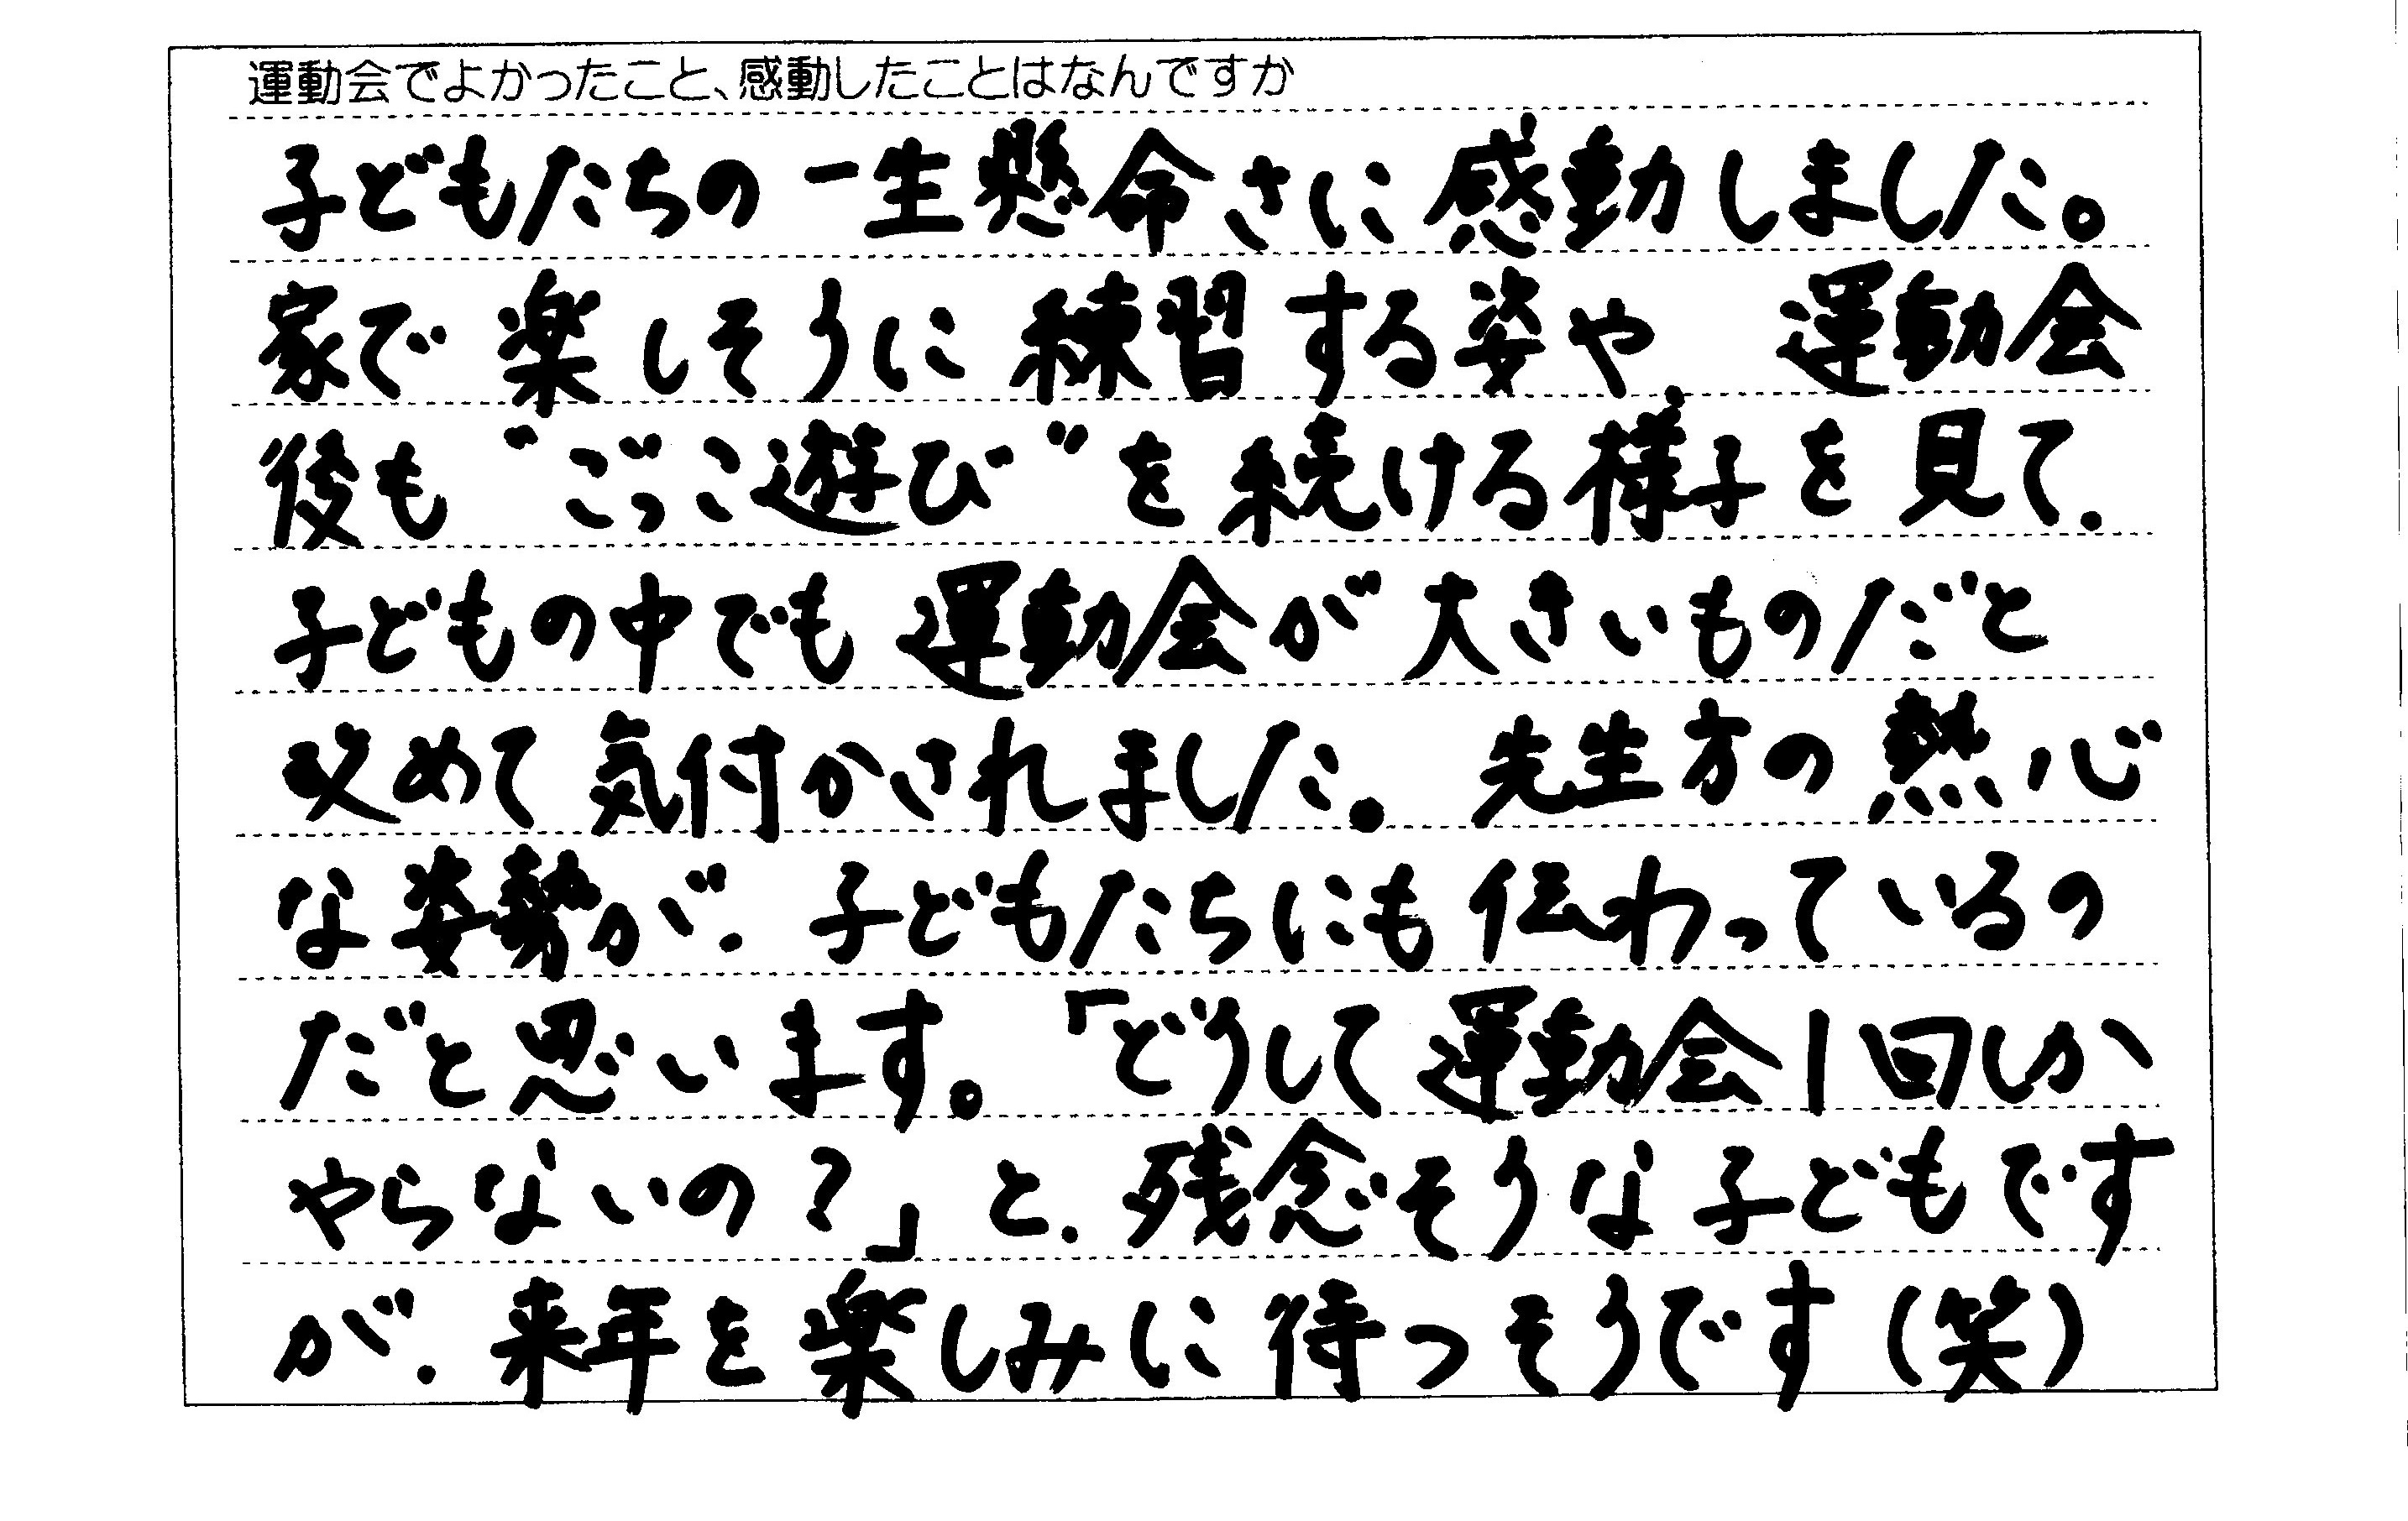 運動会でよかったこと、感動したことはなんですか
子どもたちの一生懸命さに感動しました。
家で楽しそうに練習する姿や、運動会
後も〝ごっこ遊び〟を続ける様子を見て、
子どもの中でも運動会が大きいものだと
改めて気付かされました。先生方の熱心
な姿勢が、子どもたちにも伝わっているの
だと思います。「どうして運動会1回しか
やらないの?」と、残念そうな子どもです
が、来年を楽しみに待つそうです(笑)